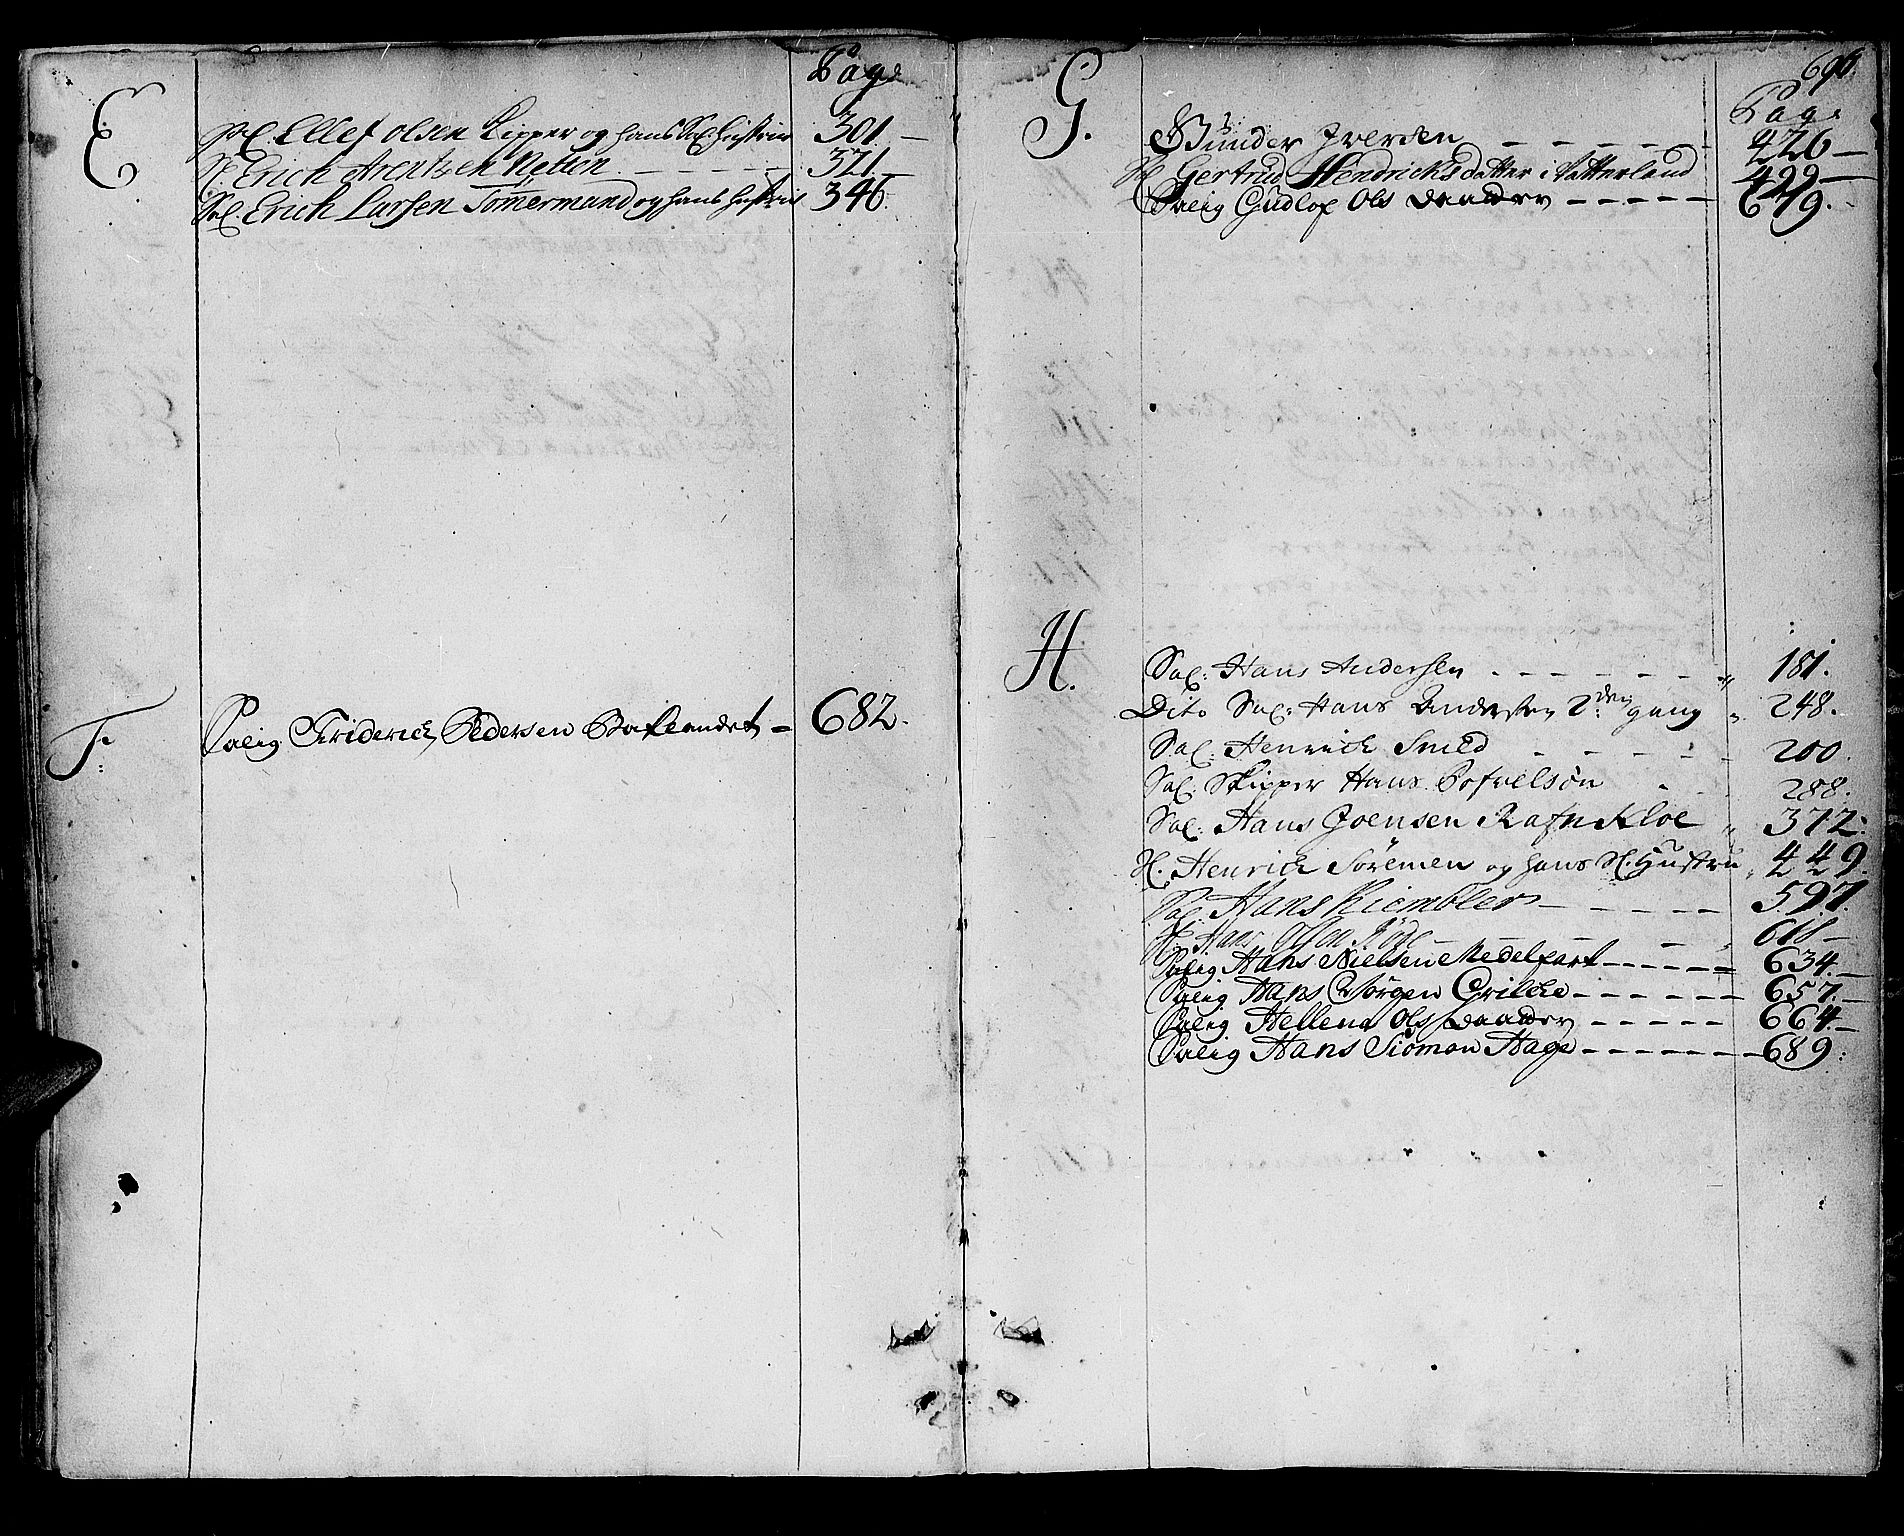 Page
E
Sl. Ellef Olsen Kipper og hans Sal. Hustrue 301
Sl. Erich Arentzen 321
Sal. Erich Larsen Tömermand og hans hustrue 346
F.
Salig Friderich Pedersen Baklandet 682.
Page
G.
Gunder Iversen 426
Sl. Gertrud Hendricksdatter i Vatterland 499
Salig Gudlof Ols Daatter 679.
H.
Sal: Hans Andersen 181.
Dito Sal: Hans Andersen 2den gang 248.
Sal: Henrich Smed 200.
Sal: Skipper Hans Pofvelsøn 288.
Sal: Hans Joensen Rafnkloe 312:
Sl. Henrich Sörensen og hans Sl. Hustru 449.
Sal: Hans Kiembler 597.
Sl. Hans Olsen 618
Salig Hans Nielsen Medelfart 634.
Salig Hans Jørgen Grilche 657.
Salig Hellena Ols Daatter 664.
Salig Hans Siomon Hage 689: